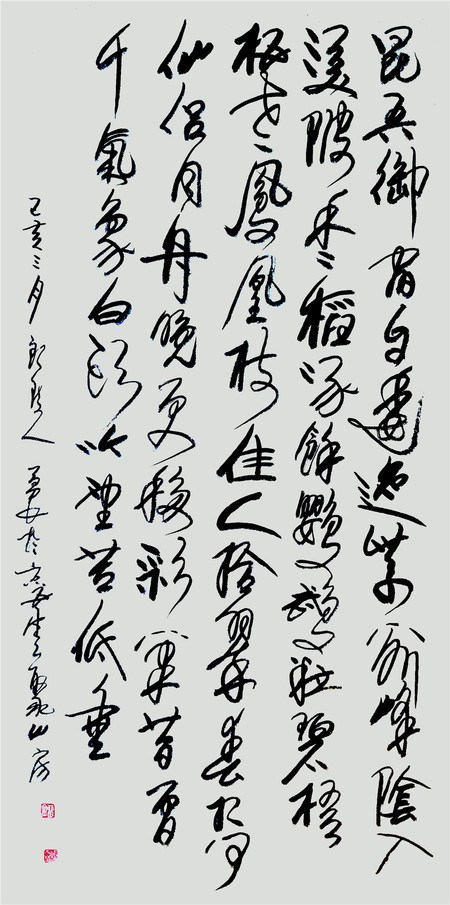 昆吾御宿自逶迤紫阁峰陰入
渼陂香稻啄餘鸚鵡粒碧梧
栖老鳳凰枝佳人拾翠春相问
仙侣同舟晚更移彩筆昔曾
干氣象白頭吟望苦低垂
己亥三月 人 於京 山房